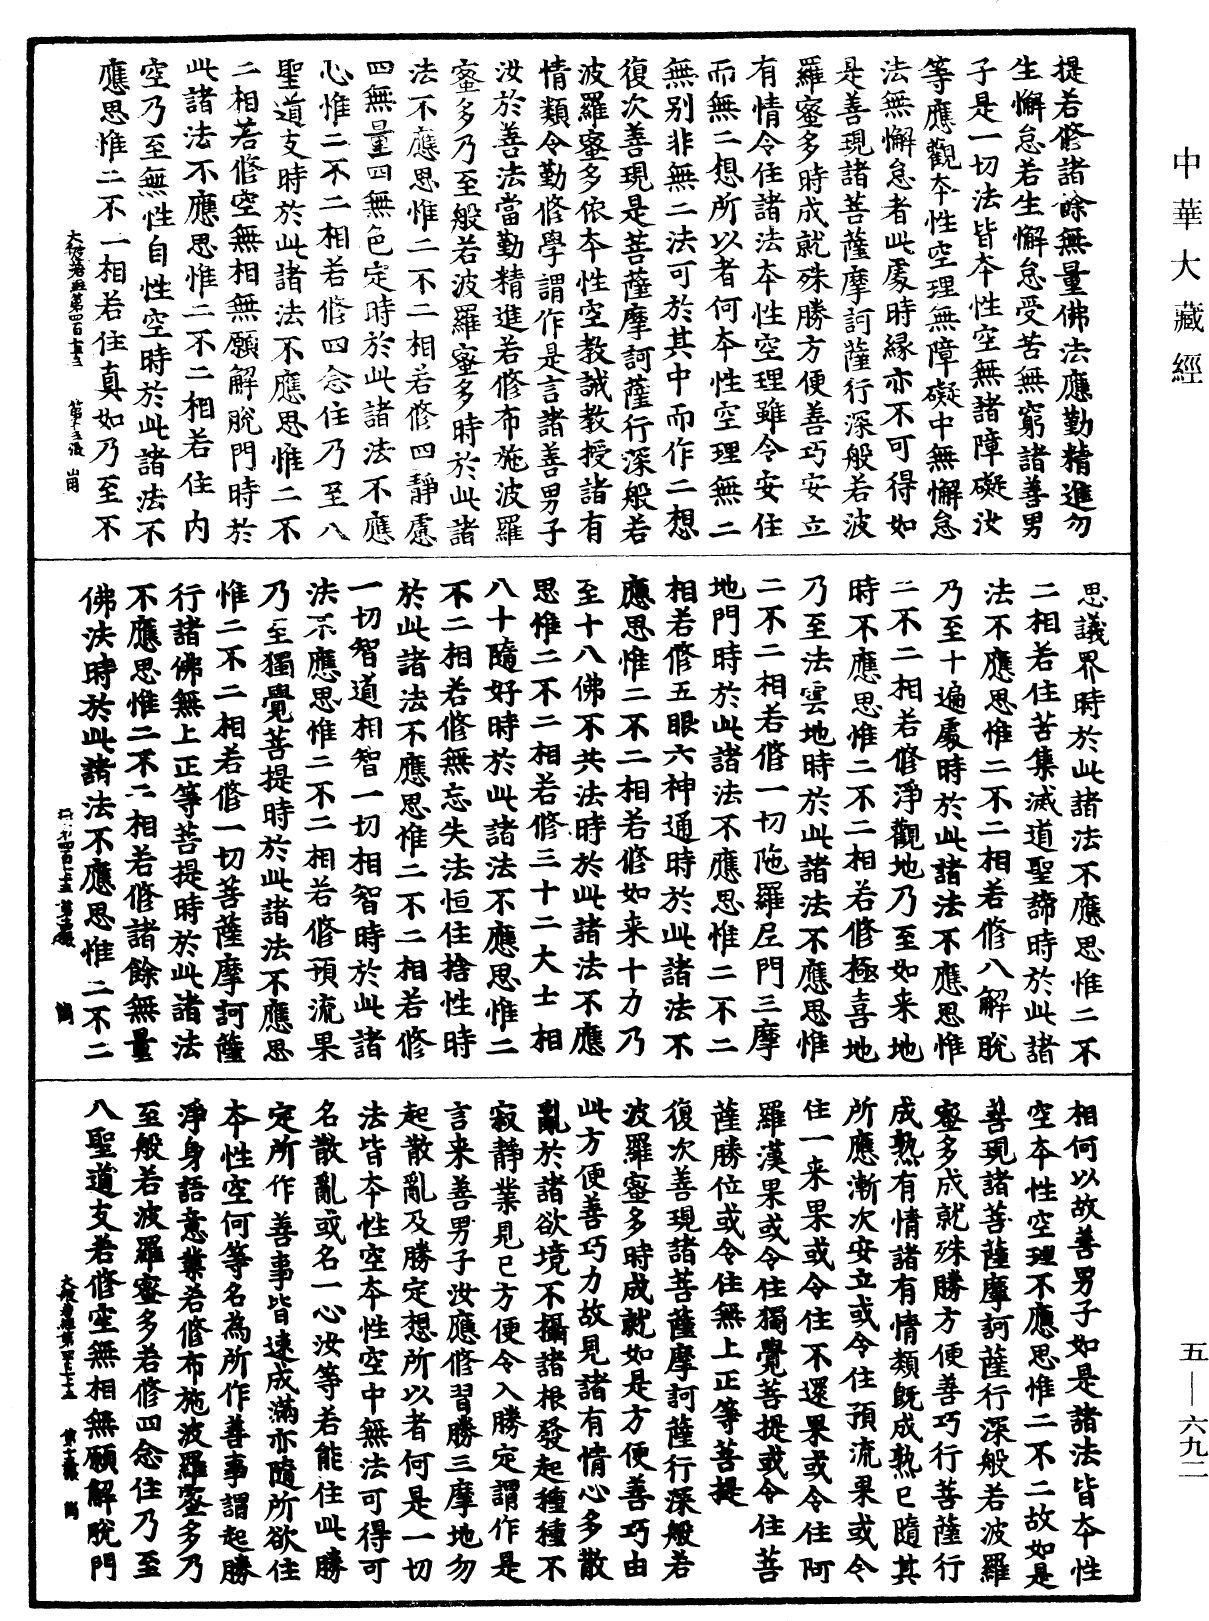 中華大藏經
提若修諸餘無量佛法應勤精進勿
生懈怠若生懈怠受苦無窮諸善男
子是一切法皆本性空無諸障礙汝
等應觀本性空理無障礙中無懈怠
法無懈怠者此處時緣亦不可得如
是善現諸菩薩摩訶薩行深般若波
羅蜜多時成就殊勝方便善巧安立
有情令住諸法本性空理雖令安住
而無二想所以者何本性空理無二
無別非無二法可於其中而作二想
復次善現是菩薩摩訶薩行深般若
波羅蜜多依本性空教誡教授諸有
情類令勤修學謂作是言諸善男子
汝於善法當勤精進若修布施波羅
蜜多乃至般若波羅蜜多時於此諸
法不應思惟二不二相若修四靜慮
四無量四無色定時於此諸法不應
心惟二不二相若修四念住乃至八
聖道支時於此諸法不應思惟二不
二相若修空無相無願解脫門時於
此諸法不應思惟二不二相若住內
空乃至無性自性空時於此諸法不
應思惟二不一相若住真如乃至不
思議界時於此諸法不應思惟二不
二相若住苦集滅道聖諦時於此諸
法不應思惟二不二相若修八解脫
乃至十遍處時於此諸法不應思惟
二不二相若修淨觀地乃至如来地
時不應思惟二不二相若修極喜地
乃至法雲地時於此諸法不應思惟
二不二相若修一切陁羅尼門三摩
地門時於此諸法不應思惟二不二
相若修五眼六神通時於此諸法不
應思惟二不二相若修如来十力乃
至十八佛不共法時於此諸法不應
思惟二不二相若修三十二大士相
八十隨好時於此諸法不應思惟二
不二相若修無忘失法恒住捨性時
於此諸法不應思惟二不二相若修
一切智道相智一切相智時於此諸
法不應思惟二不二相若修預流果
乃至獨覺菩提時於此諸法不應思
惟二不二相若修一切菩薩摩訶薩
行諸佛無上正等菩提時於此諸法
不應思惟二不二相若修諸餘無量
佛法時於此諸法不應思惟二不二
相何以故善男子如是諸法皆本性
空本性空理不應思惟二不二故如是
善現諸菩薩摩訶薩行深般若波羅
蜜多成就殊勝方便善巧行菩薩行
成熟有情諸有情類旣成熟已隨其
所應漸次安立或令住預流果或令
住一来果或令住不還果或令住阿
羅漢果或令住獨覺菩提或令住菩
薩勝位或令住無上正等菩提
復次善現諸菩薩摩訶薩行深般若
波羅蜜多時成就如是方便善巧由
此方便善巧力故見諸有情心多散
亂於諸欲境不攝諸根發起種種不
寂靜業見已方便令入勝定謂作是
言来善男子汝應修習勝三摩地勿
起散亂及勝定想所以者何是一切
法皆本性空本性空中無法可得可
名散亂或名一心汝等若能住此勝
定所作善事皆速成滿亦隨所欲住
本性空何等名為所作善事謂起勝
淨身語意業若修布施波羅蜜多乃
至般若波羅蜜多若修四念住乃至
八聖道支若修空無相無願解脫門
五—六九二